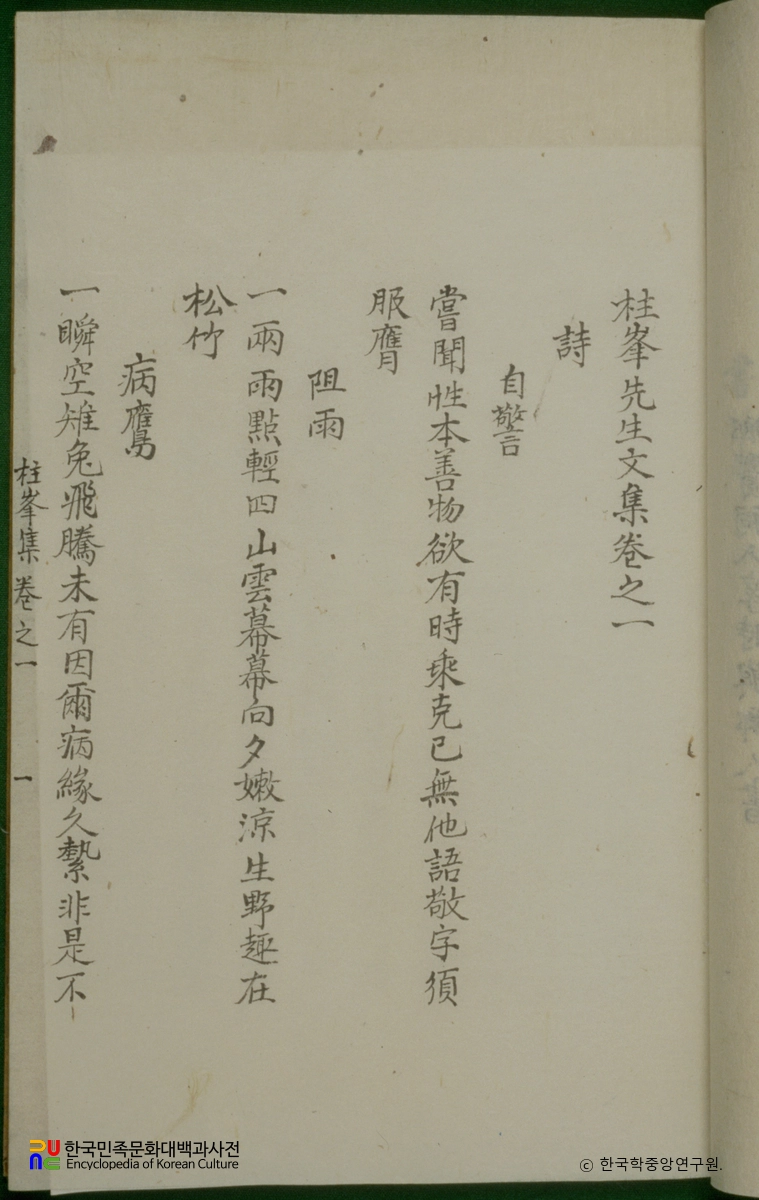 柱峯先生文集卷之一
詩
自警
嘗聞性本善物欲有時乘克己無他語敬字須
服膺
阻雨
一兩雨點輕四山雲幕幕向夕嫩涼生野趣在
松竹
病鷹
一瞬空雉兔飛騰未有因爾病緣久縶非是不
柱峯集 卷之一 一
한국민족문화대백과사전
Encyclopedia of Korean Culture
ⓒ 한국학중앙연구원.